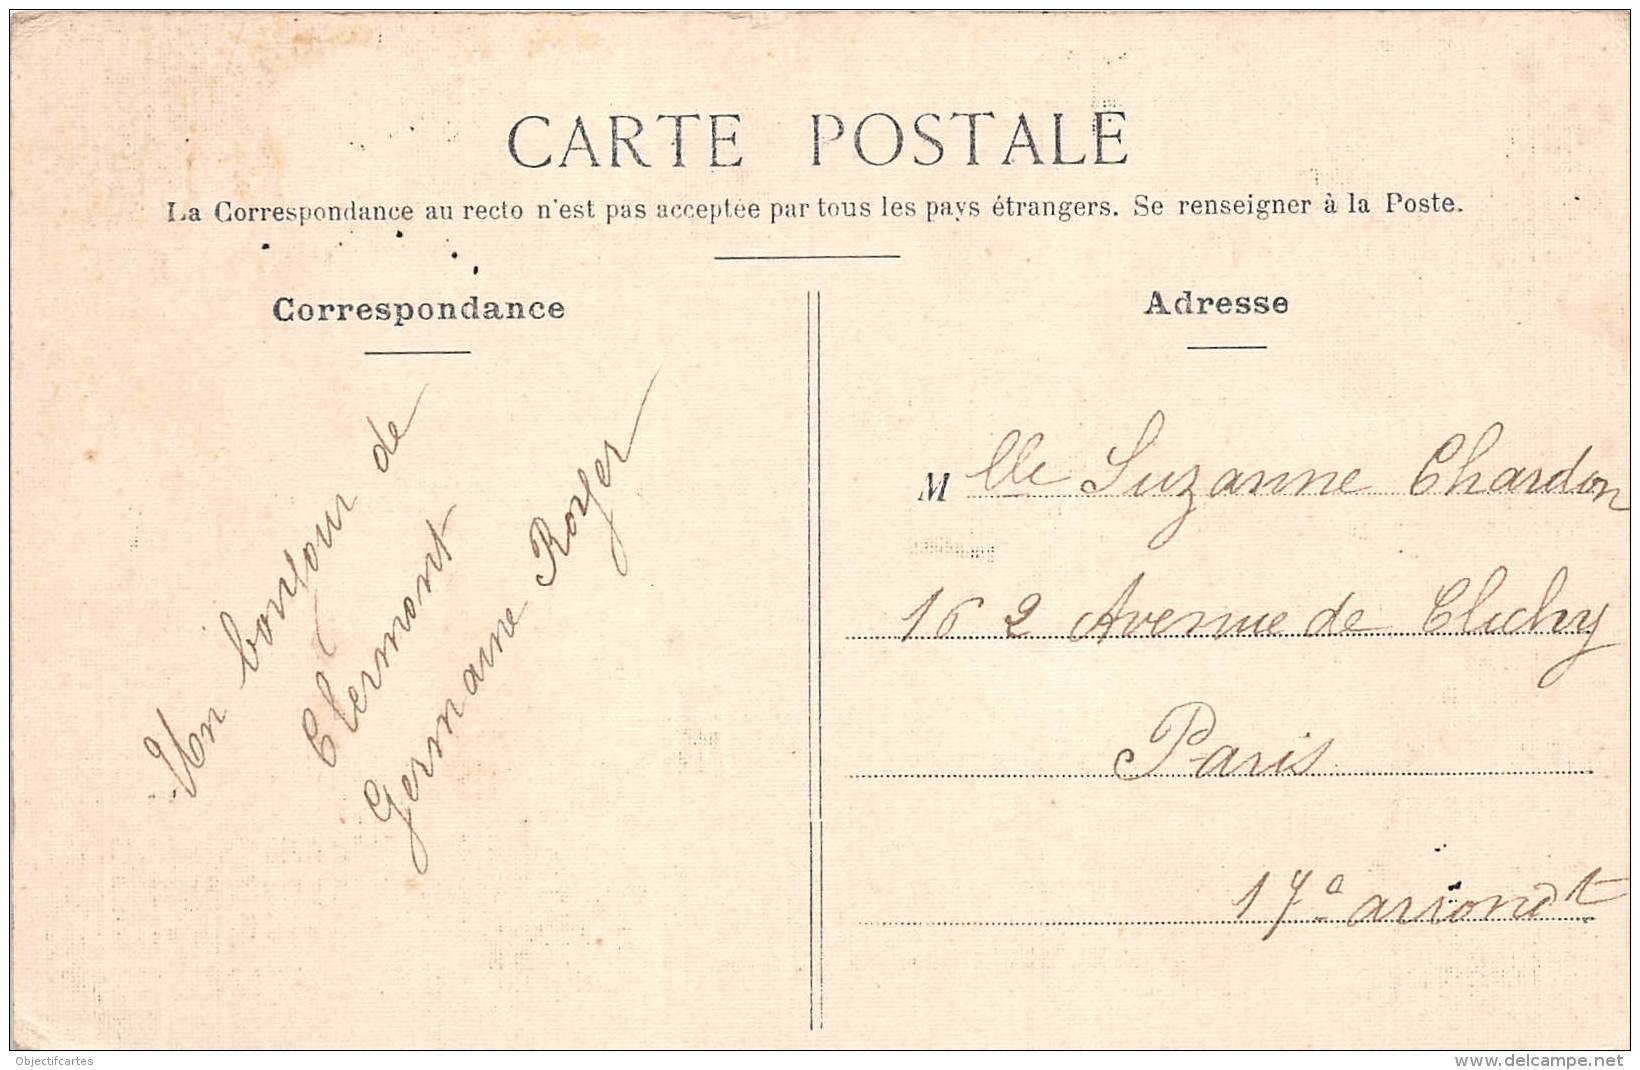 CARTE POSTALE
La Correspondance au recto n'est pas acceptée par tous les pays étrangers. Se renseigner à la Poste.
Correspondance
Un bonjour de
Clermont
Germaine Royer
Adresse
Mlle Suzanne Chardon
162 Avenue de Clichy
Paris
17e arrondt
Objectifcartes
www.delcampe.net